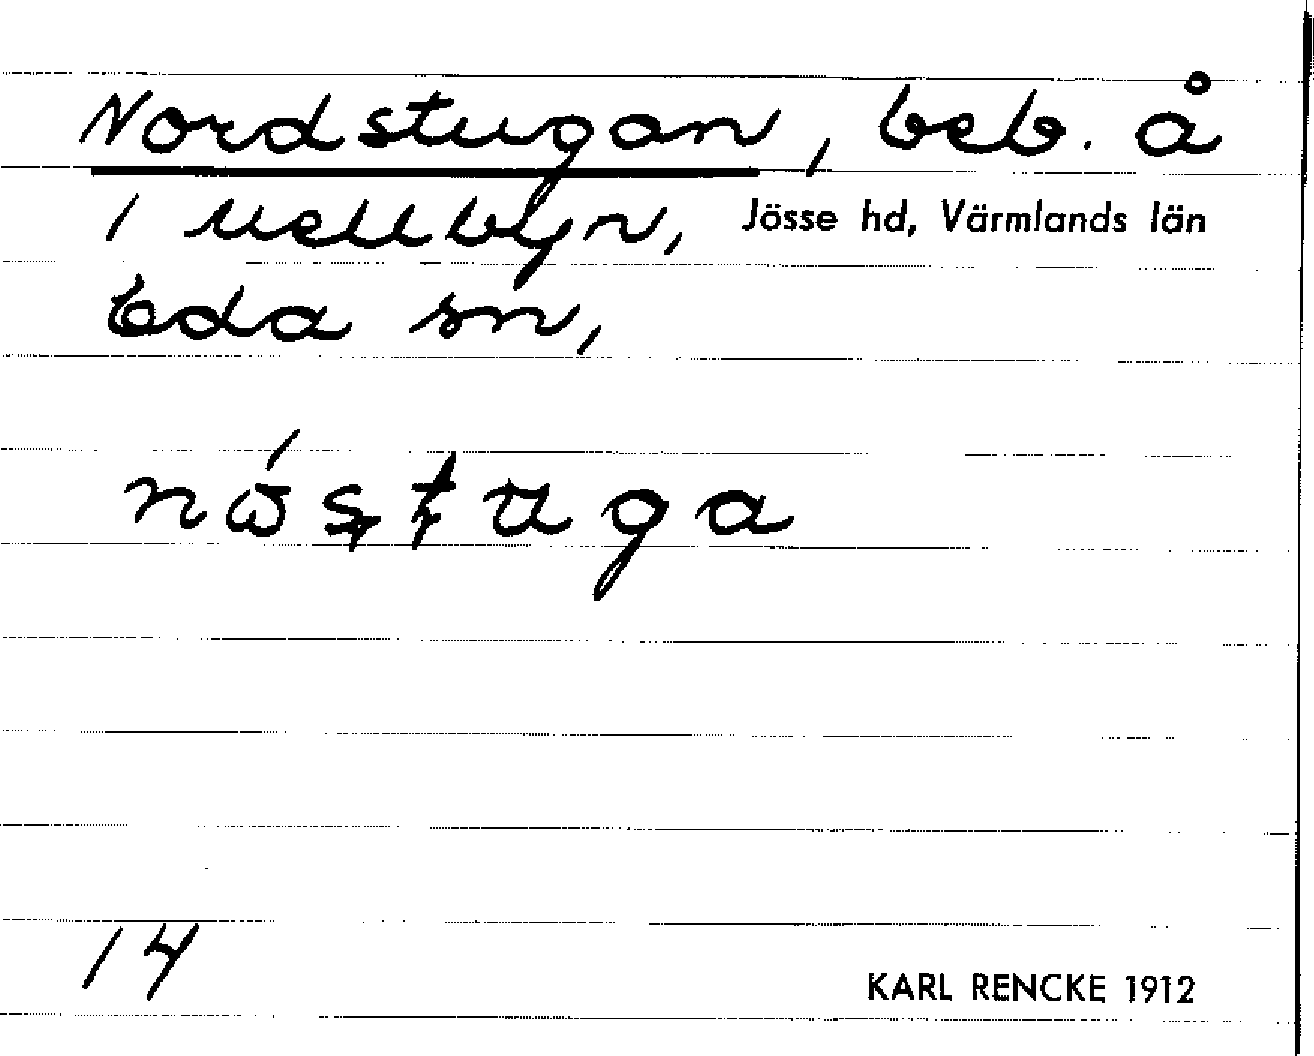 Nordstugan, beb. å
1 Mellbyn, Jösse hd, Värmlands län
Eda sn,
14
KARL RENCKE 1912